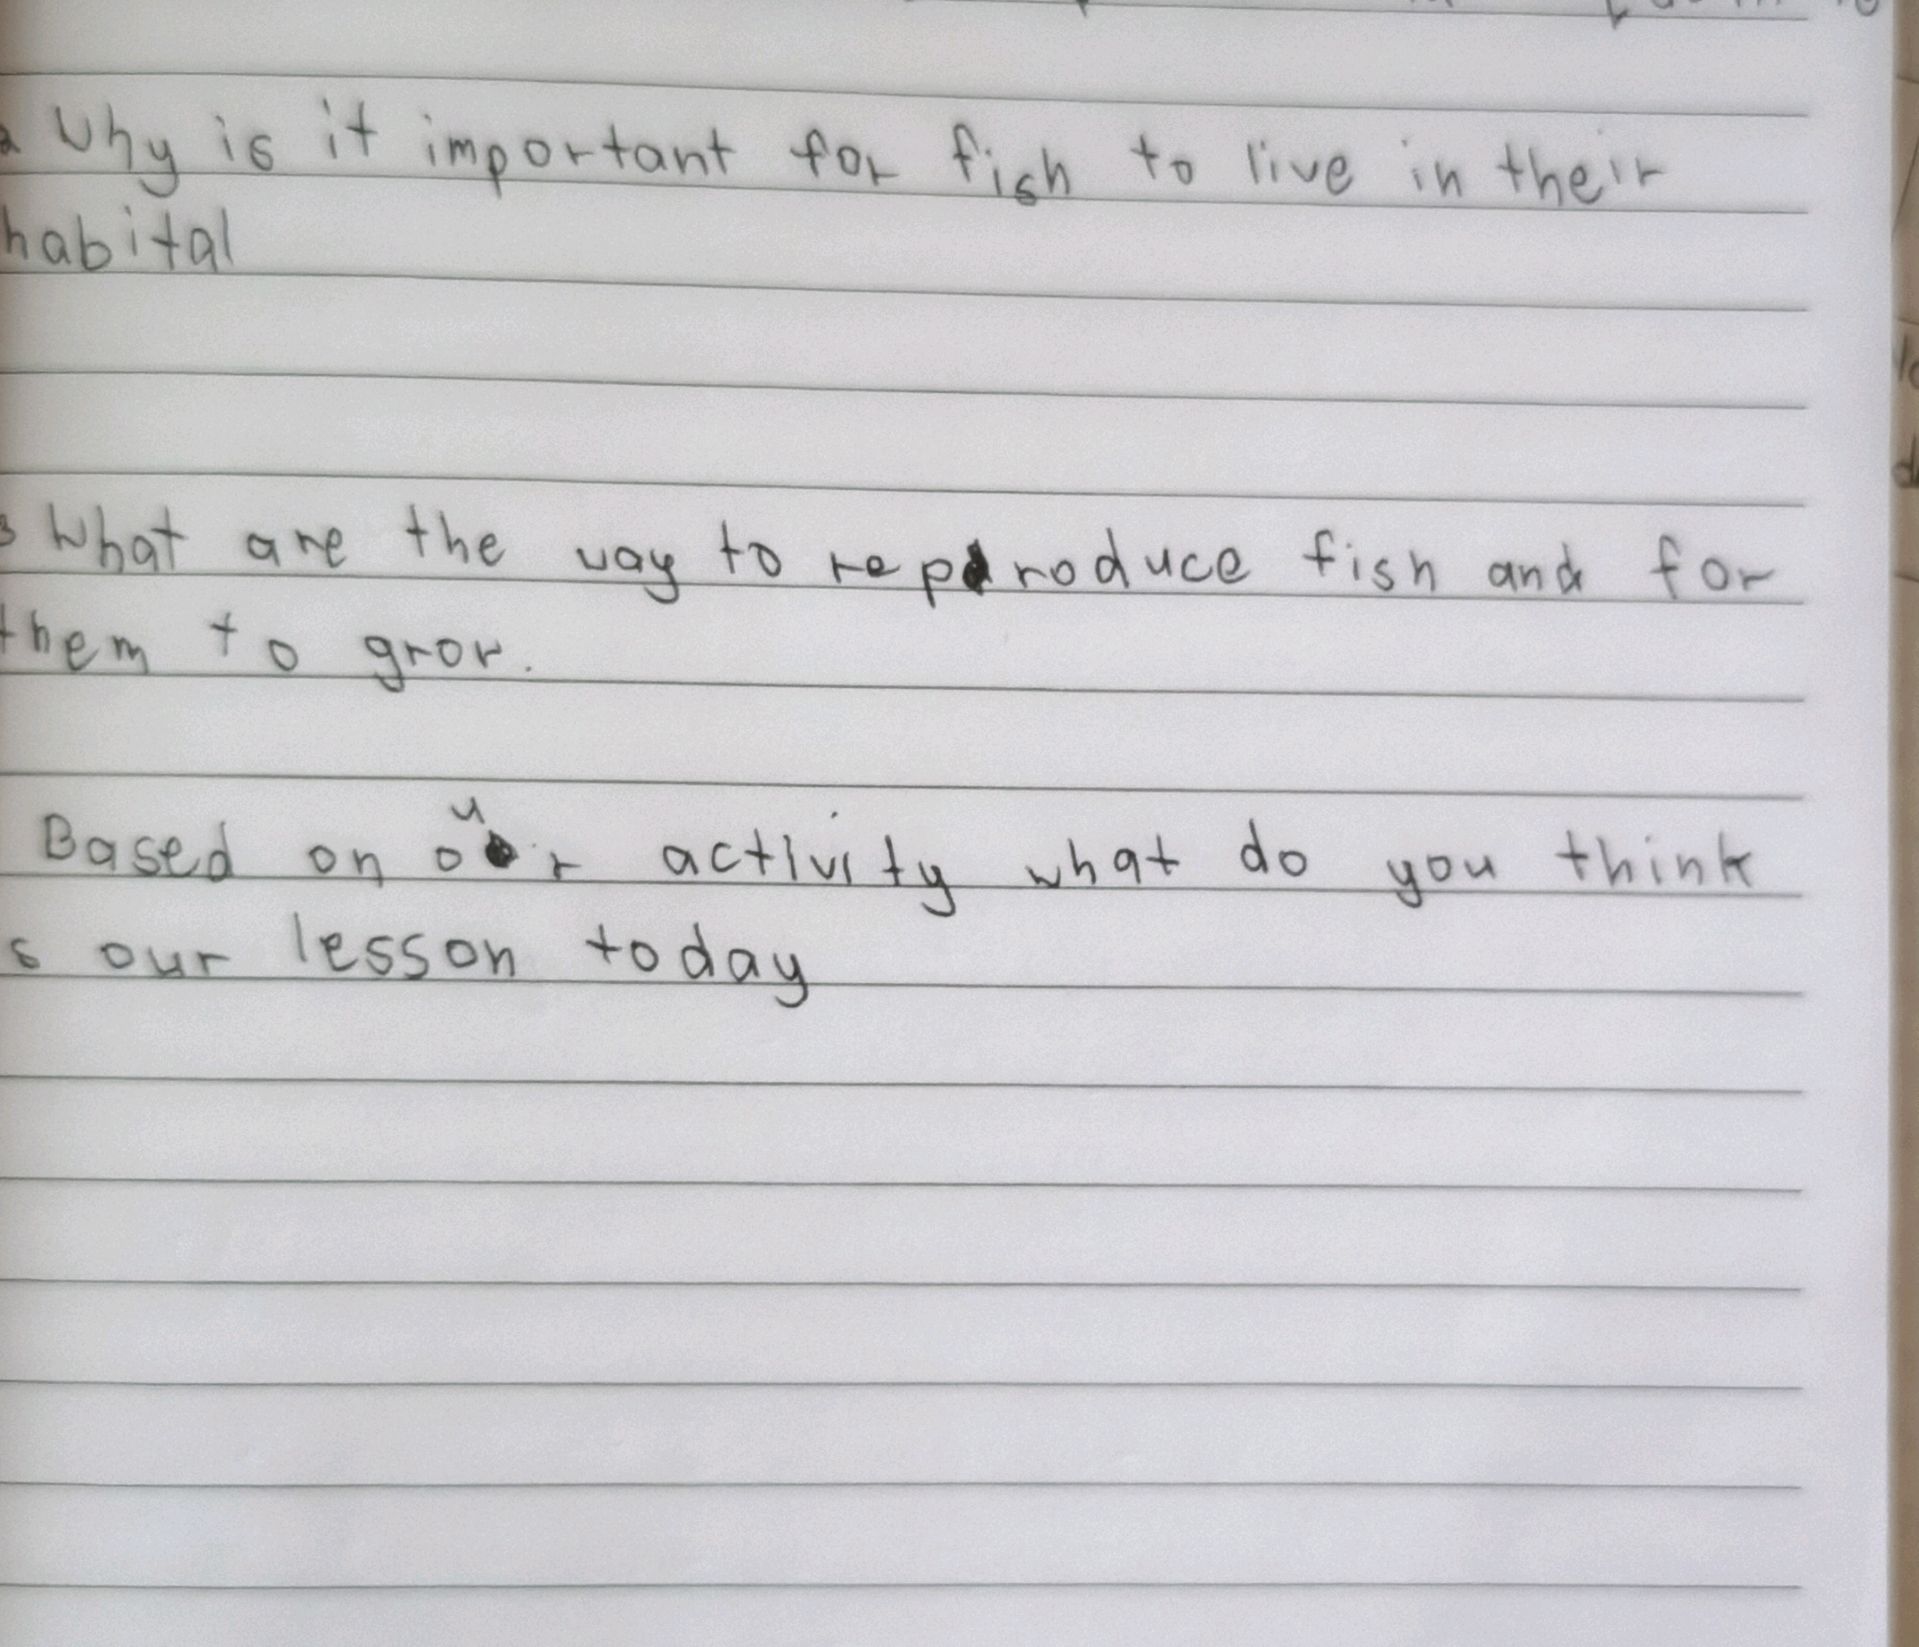 2 Why is it important for fish to live in their
habital
3 What are the way to reproduce fish and for
them to gror.
Based on our activity what do you think
s our lesson today